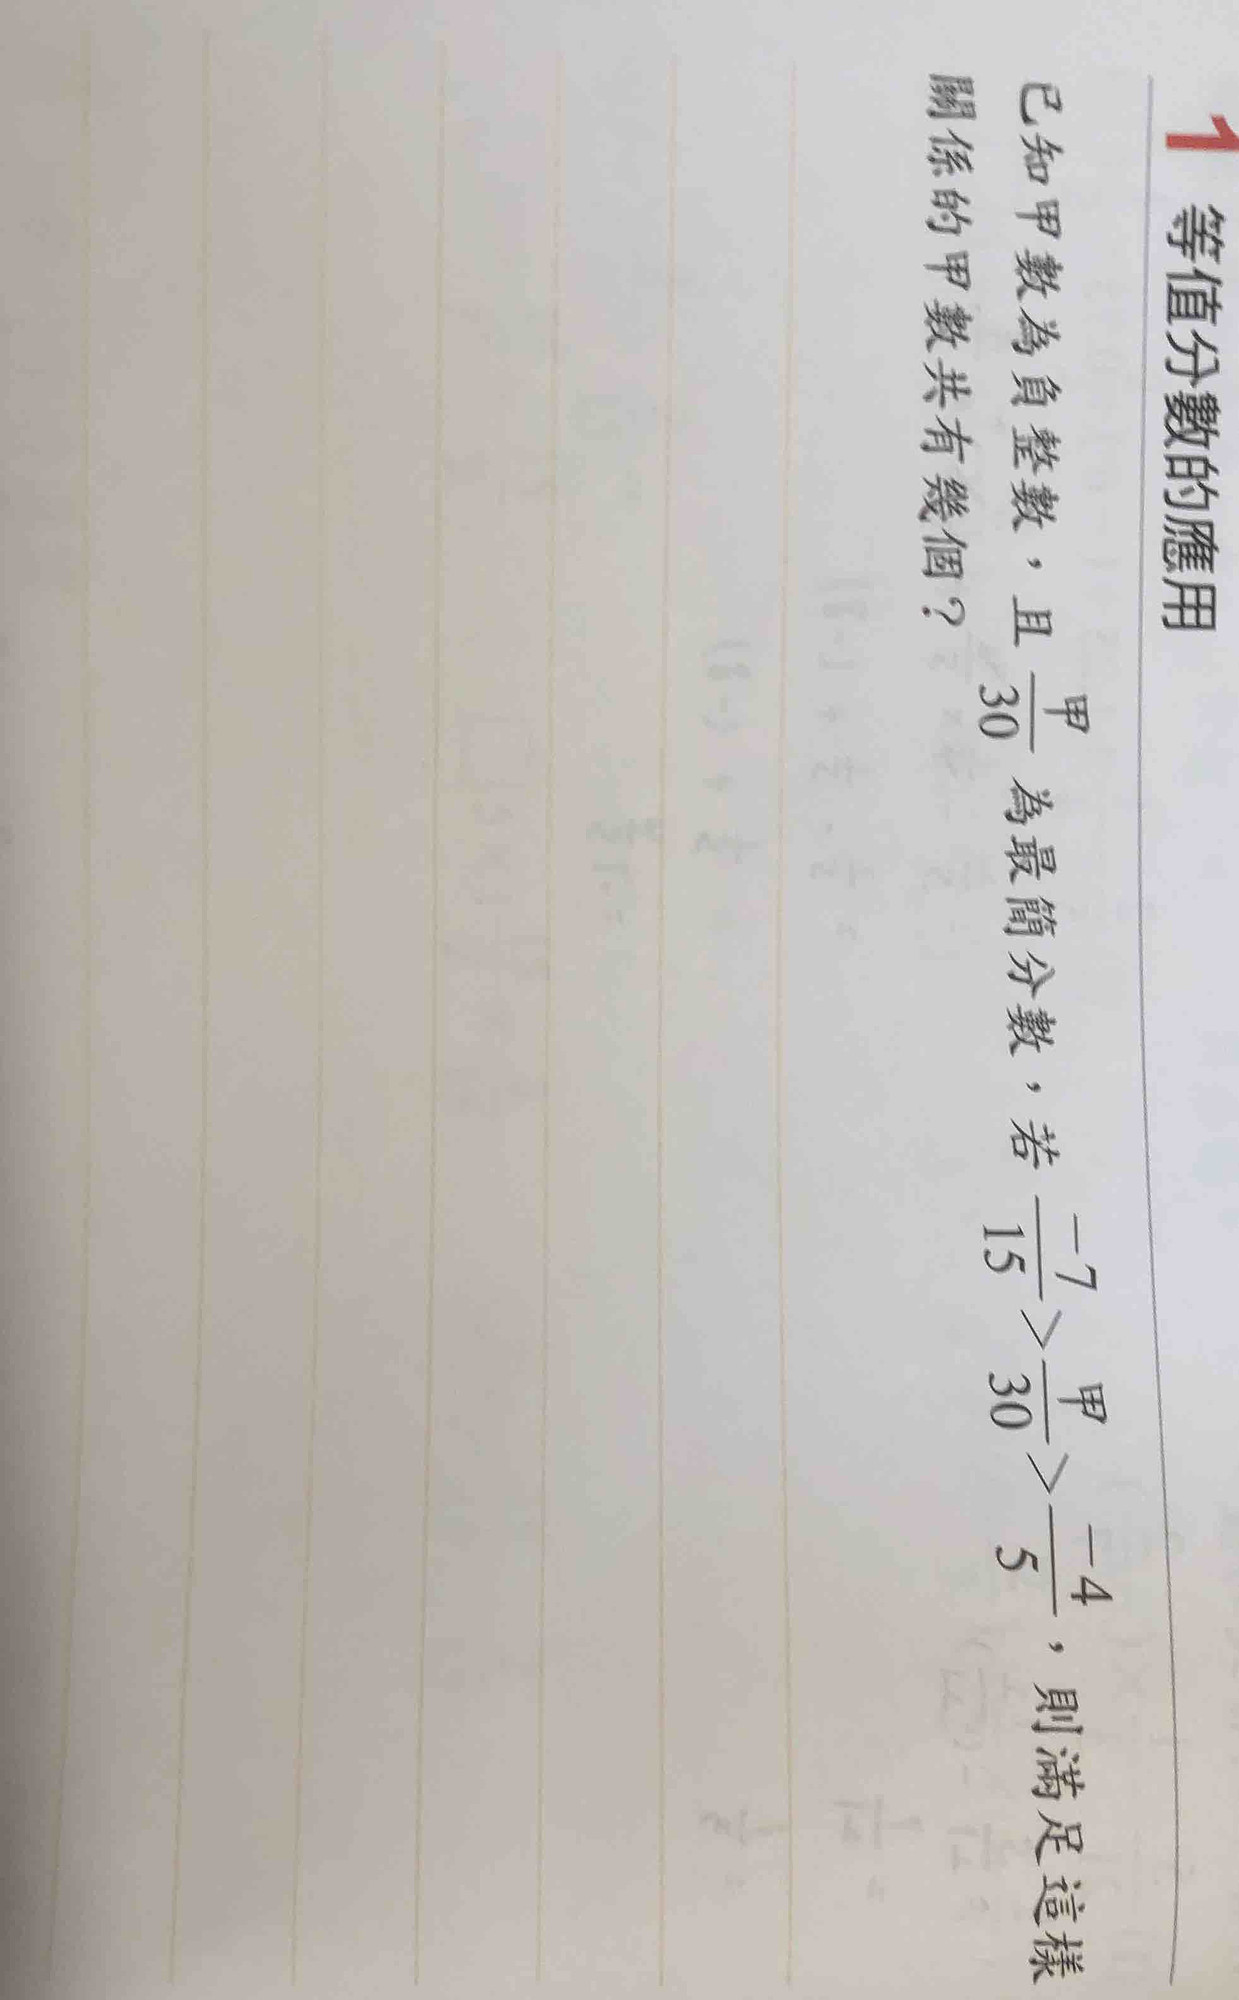 1 等值分數的應用
已知甲數為負整數，且 甲/30 為最簡分數，若 -7/15 > 甲/30 > -4/5，則滿足這樣
關係的甲數共有幾個？